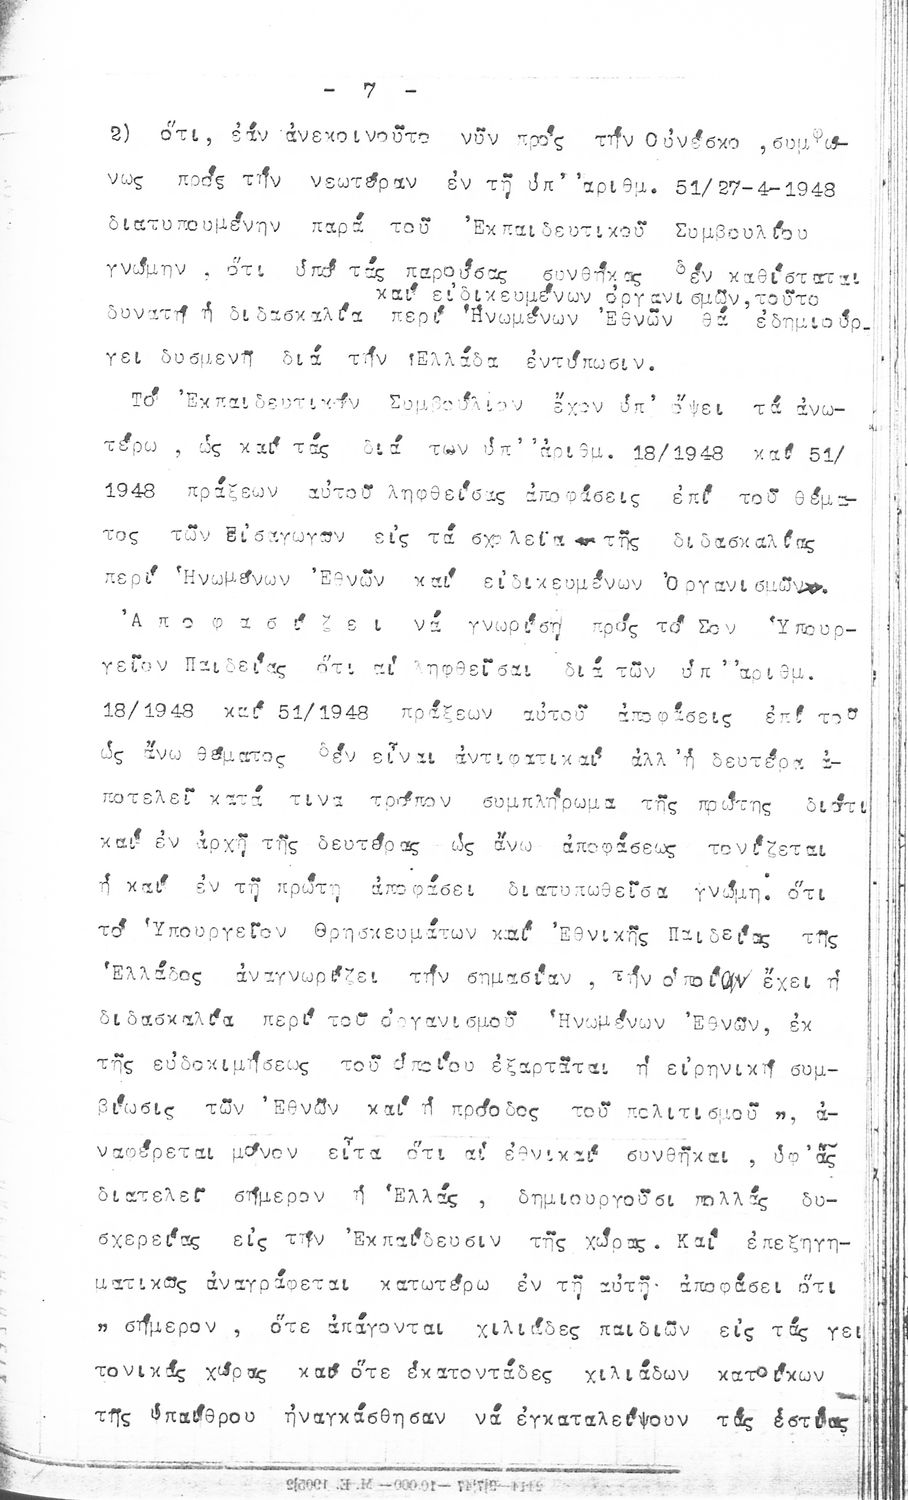 - 7 -
2) ὅτι, ἐάν ἀνεκοινοῦτο νῦν πρός τήν Οὐνέσκο ,συμφώ-
νως πρός τήν νεωτέραν ἐν τῇ ὑπ' ἀριθμ. 51/27-4-1948
διατυπουμένην παρά τοῦ Ἐκπαιδευτικοῦ Συμβουλίου
γνώμην , ὅτι ὑπό τάς παρούσας συνθήκας δέν καθίσταται
καί εἰδικευμένων ὀργανισμῶν,τοῦτο
δυνατή ἡ διδασκαλία περί Ἡνωμένων Ἐθνῶν θά ἐδημιούρ-
γει δυσμενῆ διά τήν Ἑλλάδα ἐντύπωσιν.
Τό Ἐκπαιδευτικόν Συμβούλιον ἔχον ὑπ' ὄψει τά ἀνω-
τέρω , ὡς καί τάς διά των ὑπ' ἀριθμ. 18/1948 καί 51/
1948 πράξεων αὐτοῦ ληφθείσας ἀποφάσεις ἐπί τοῦ θέμα-
τος τῶν Εἰσαγωγῶν εἰς τά σχολεῖα τῆς διδασκαλίας
περί Ἡνωμένων Ἐθνῶν καί εἰδικευμένων Ὀργανισμῶν.
Ἀ π ο φ α σ ί ζ ε ι νά γνωρίσῃ πρός τό Σον Ὑπουρ-
γεῖον Παιδείας ὅτι αἱ ληφθεῖσαι διά τῶν ὑπ' ἀριθμ.
18/1948 καί 51/1948 πράξεων αὐτοῦ ἀποφάσεις ἐπί τοῦ
ὡς ἄνω θέματος δέν εἶναι ἀντιφατικαί ἀλλ'ἡ δευτέρα ἀ-
ποτελεῖ κατά τινα τρόπον συμπλήρωμα τῆς πρώτης διότι
καί ἐν ἀρχῇ τῆς δευτέρας ὡς ἄνω ἀποφάσεως τονίζεται
ἡ καί ἐν τῇ πρώτῃ ἀποφάσει διατυπωθεῖσα γνώμη: ὅτι
τό Ὑπουργεῖον Θρησκευμάτων καί Ἐθνικῆς Παιδείας τῆς
Ἑλλάδος ἀναγνωρίζει τήν σημασίαν , τήν ὁποίαν ἔχει ἡ
διδασκαλία περί τοῦ ὀργανισμοῦ Ἡνωμένων Ἐθνῶν, ἐκ
τῆς εὐδοκιμήσεως τοῦ ὁποίου ἐξαρτᾶται ἡ εἰρηνική συμ-
βίωσις τῶν Ἐθνῶν καί ἡ πρόοδος τοῦ πολιτισμοῦ ", ἀ-
ναφέρεται μόνον εἶτα ὅτι αἱ ἐθνικαί συνθῆκαι , ὑφ'ἅς
διατελεῖ σήμερον ἡ Ἑλλάς , δημιουργοῦσι πολλάς δυ-
σχερείας εἰς τήν Ἐκπαίδευσιν τῆς χώρας. Καί ἐπεξηγη-
ματικῶς ἀναγράφεται κατωτέρω ἐν τῇ αὐτῇ ἀποφάσει ὅτι
" σήμερον , ὅτε ἀπάγονται χιλιάδες παιδιῶν εἰς τάς γει
τονικάς χώρας καί ὅτε ἑκατοντάδες χιλιάδων κατοίκων
τῆς ὑπαίθρου ἠναγκάσθησαν νά ἐγκαταλείψουν τάς ἑστίας